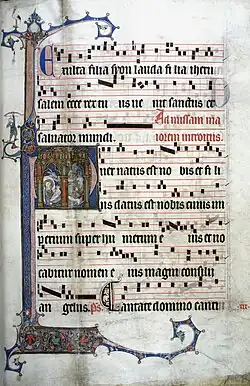 Exulta filia syon lauda filia iheru
salem ecce rex tu us ue nit sanctus et
saluator mundi. Ad missam ma
iorem introitus.
Puer natus est no bis et fi li
us datus est nobis cuius im
perium super hu merum e ius et uo
cabitur nomen e ius magni consilii
an gelus. ps. Cantate domino canti